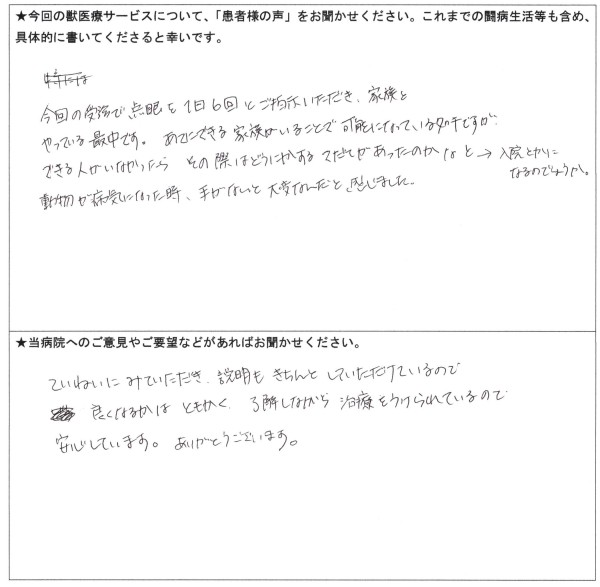 ★今回の獣医療サービスについて、「患者様の声」をお聞かせください。これまでの闘病生活等も含め、
具体的に書いてくださると幸いです。
特には
今回の受診で点眼を1日6回とご指示いただき、家族と
やっている最中です。あてにできる家族がいることで可能になっている
できる人がいなかったら その際はどうにかするてだてがあったのかなと→入院とかに
なるのでしょうか。
動物が病気になった時、手がないと大変なんだと感じました。
★当病院へのご意見やご要望などがあればお聞かせください。
ていねいにみていただき、説明もきちんとしていただけているので
良くなるかはともかく、了解しながら治療をうけられているので
安心しています。ありがとうございます。